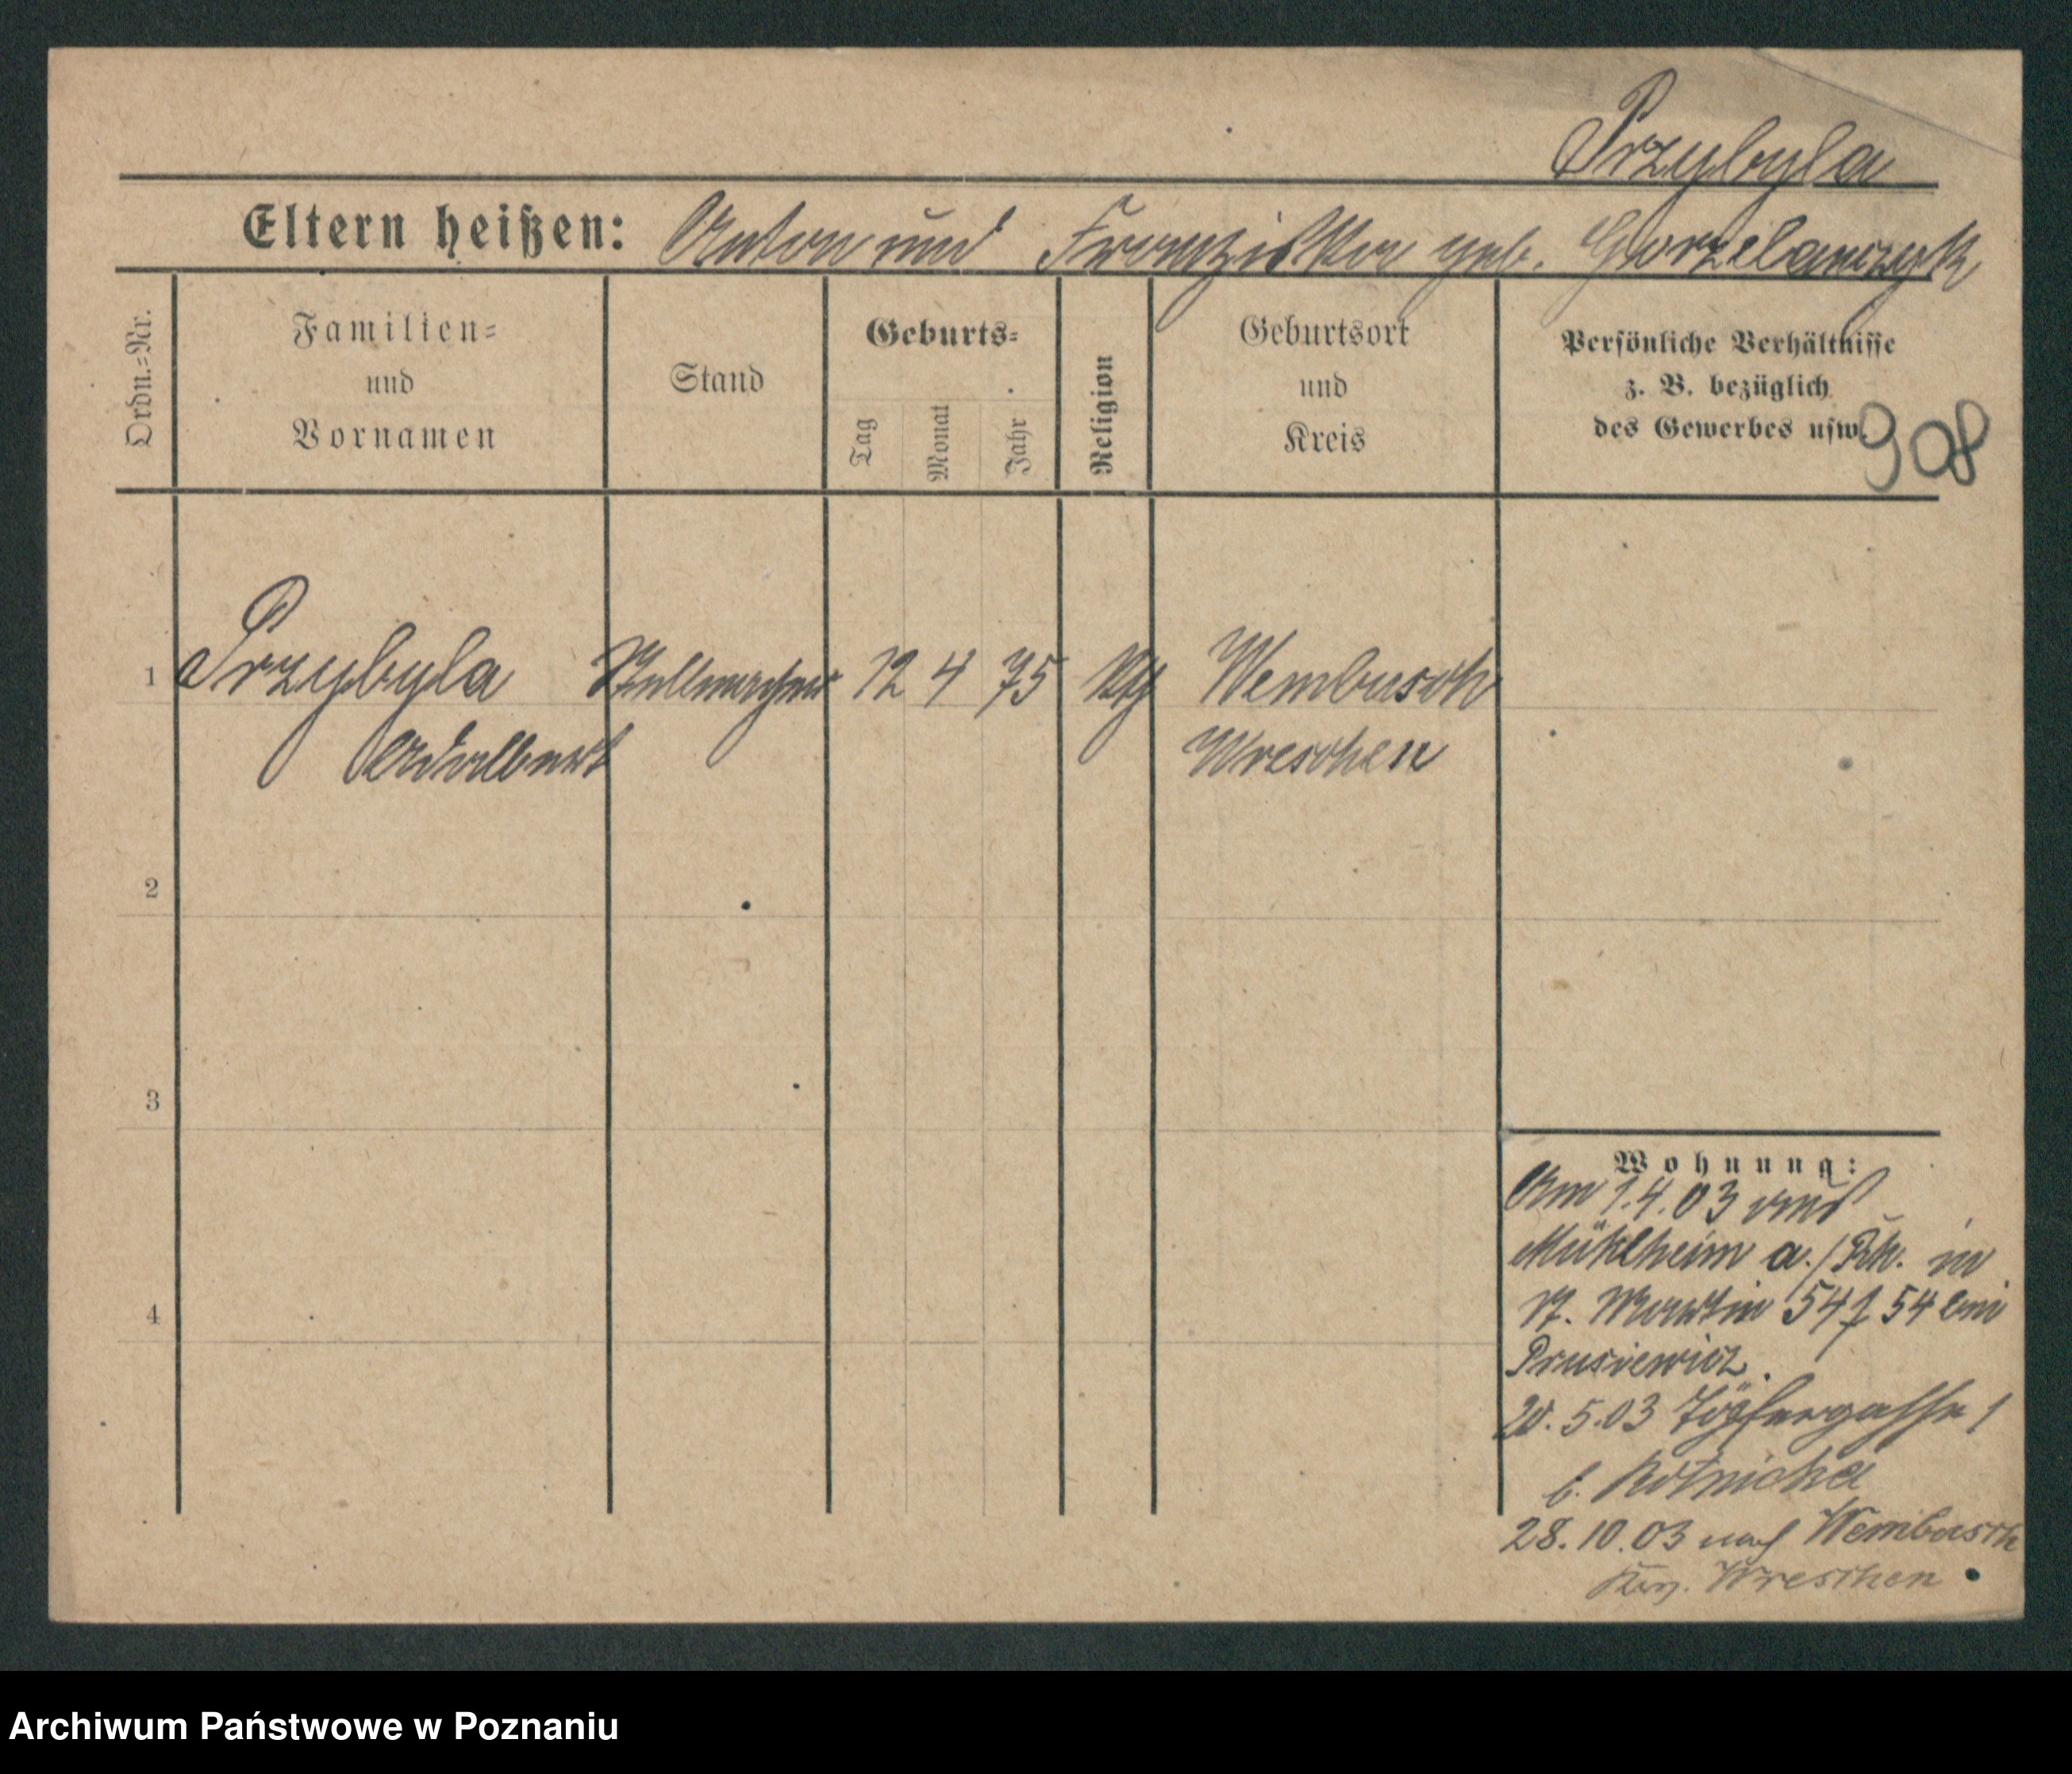 Przybyla
Eltern heißen: Anton und Franziska geb. Gorzelanczyk
Ordn.=Nr.
Familien=
und
Vornamen
Stand
Geburts=
Tag
Monat
Jahr
Religion
Geburtsort
und
Kreis
Persönliche Verhältnisse
z. B. bezüglich
des Gewerbes usw.
908
1 Przybyla Stellmacher 12 4 75 kth Wembusch
Adalbert Wreschen
2
3
4
Wohnung:
Am 1.4.03 aus
Mühlheim a./Rh. in
St. Martin 54 / 54 bei
Prusiewicz.
20.5.03 Töpfergasse 1
b. Rotnicka
28.10.03 nach Wembusch
Wreschen
Archiwum Państwowe w Poznaniu